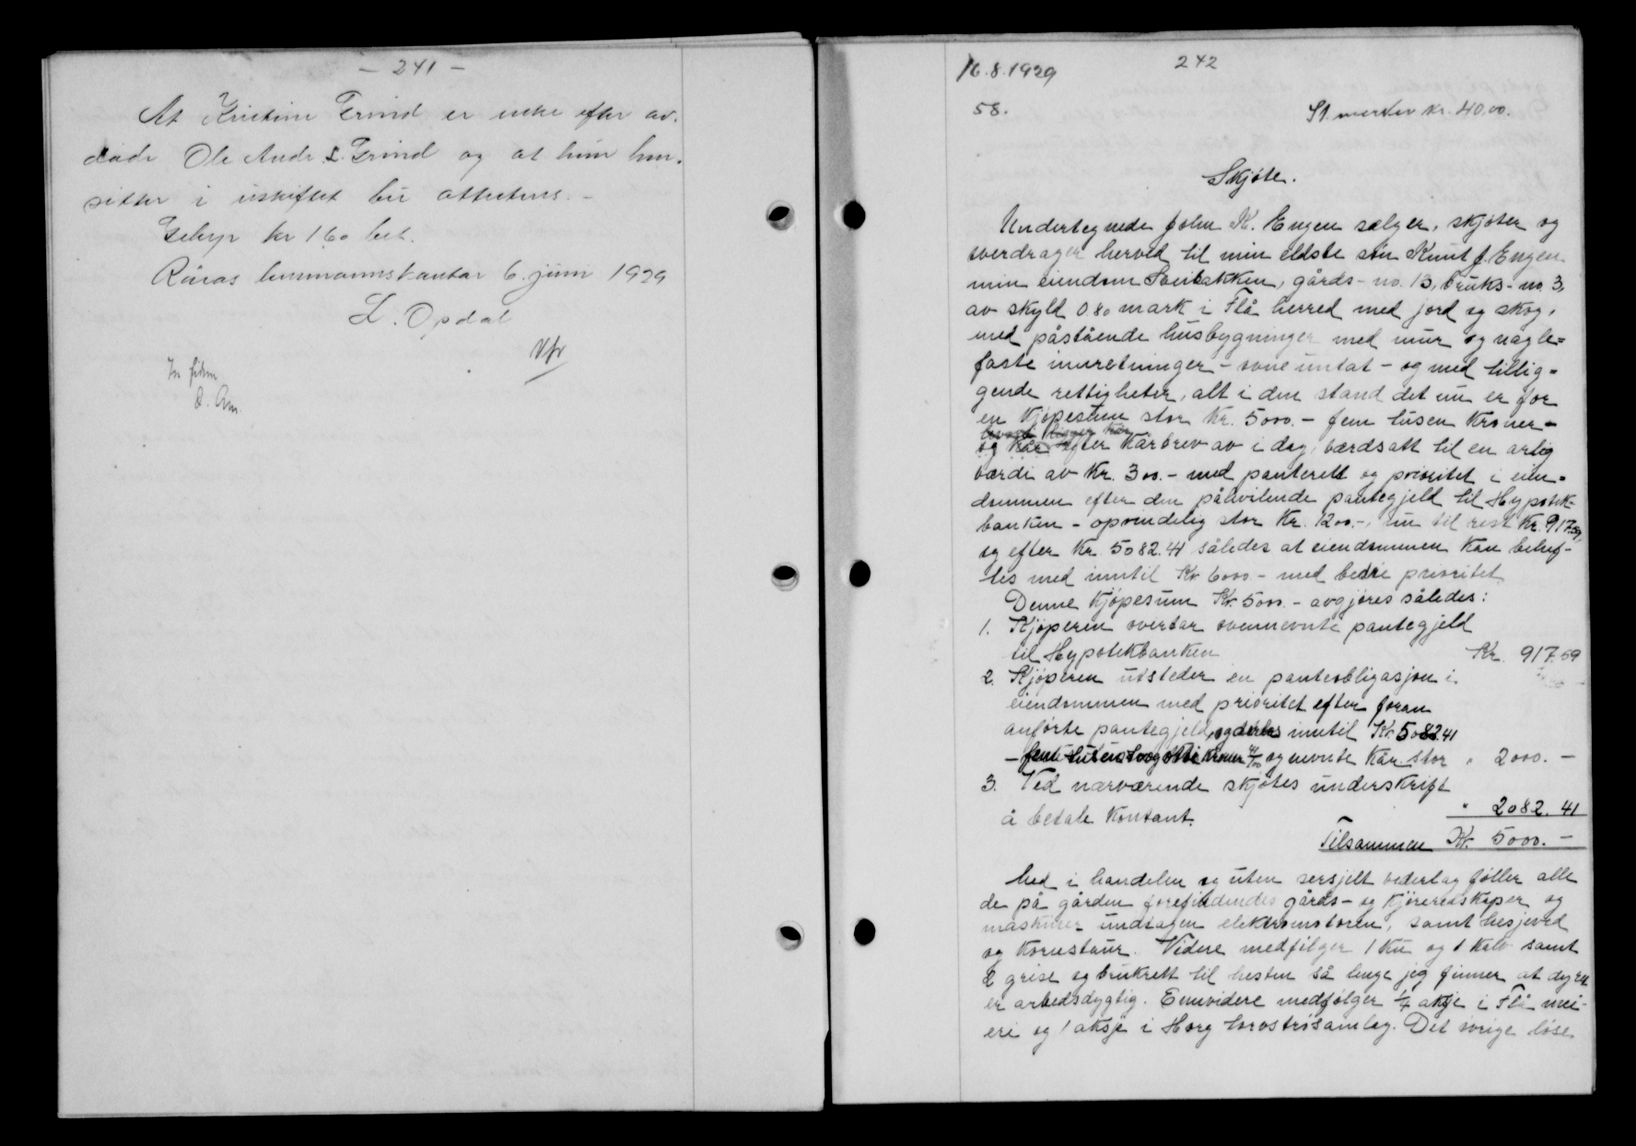 - 241 -
At Kristine Grind er enke efter av-
døde Ole Andr. L. Grind og at hun hen-
sitter i uskiftet bu attesteres. -
Gebyr kr 1 60 bet.
Røros lensmannskontor 6. juni 1929
L. Opdal
16.8.1929
242
58.
St. merker kr. 40.00.
Skjøte.
Undertegnede John K. Engen sælger, skjøter og
overdrager herved til min eldste søn Knut J. Engen
min eiendom Sveibakken, gårds-no. 13, bruks-no. 3,
av skyld 0 80 mark i Flå herred med jord og skog,
med påstående husbygninger med mur og nagle=
faste innretninger - ovne untat - og med tillig-
gende rettigheter, alt i den stand det nu er for
en kjøpesum stor kr. 5000.- fem tusen kroner -
og kår efter kårbrev av i dag, værdsatt til en årlig
værdi av kr. 300.- med panterett og prioritet i eien-
dommen efter den påhvilende pantegjeld til Hypotek-
banken - oprindelig stor kr. 1200.-, nu til rest kr. 917.59,
og efter kr. 5082.41 således at eiendommen kan behef-
tes med inntil kr 6000.- med bedre prioritet
Denne kjøpesum kr. 5000.- avgjøres således:
1. Kjøperen overtar ovennevnte pantegjeld
til Hypotekbanken Kr. 917.59
2. Kjøperen utsteder en panteobligasjon i
eiendommen med prioritet efter foran
anførte pantegjeld, og inntil Kr. 5082.41
og nevnte kår stor " 2000. -
3. Ved nærværende skjøtes underskrift
å betale kontant. " 2082. 41
Tilsammen Kr. 5000. -
Med i handelen og uten sersjelt vederlag følger alle
de på gården forefindendes gårds- og kjøreredskaper og
maskiner undtagen elektromotoren, samt hesjeved
og kornstaur. Videre medfølger 1 ku og 1 kalv samt
2 grise og brukrett til hesten så lenge jeg finner at dyret
er arbeidsdygtig. Ennvidere medfølger 1/4 aksje i Flå mei-
eri og 1 aksje i Horg torvstrøsamlag. Det øvrige løse